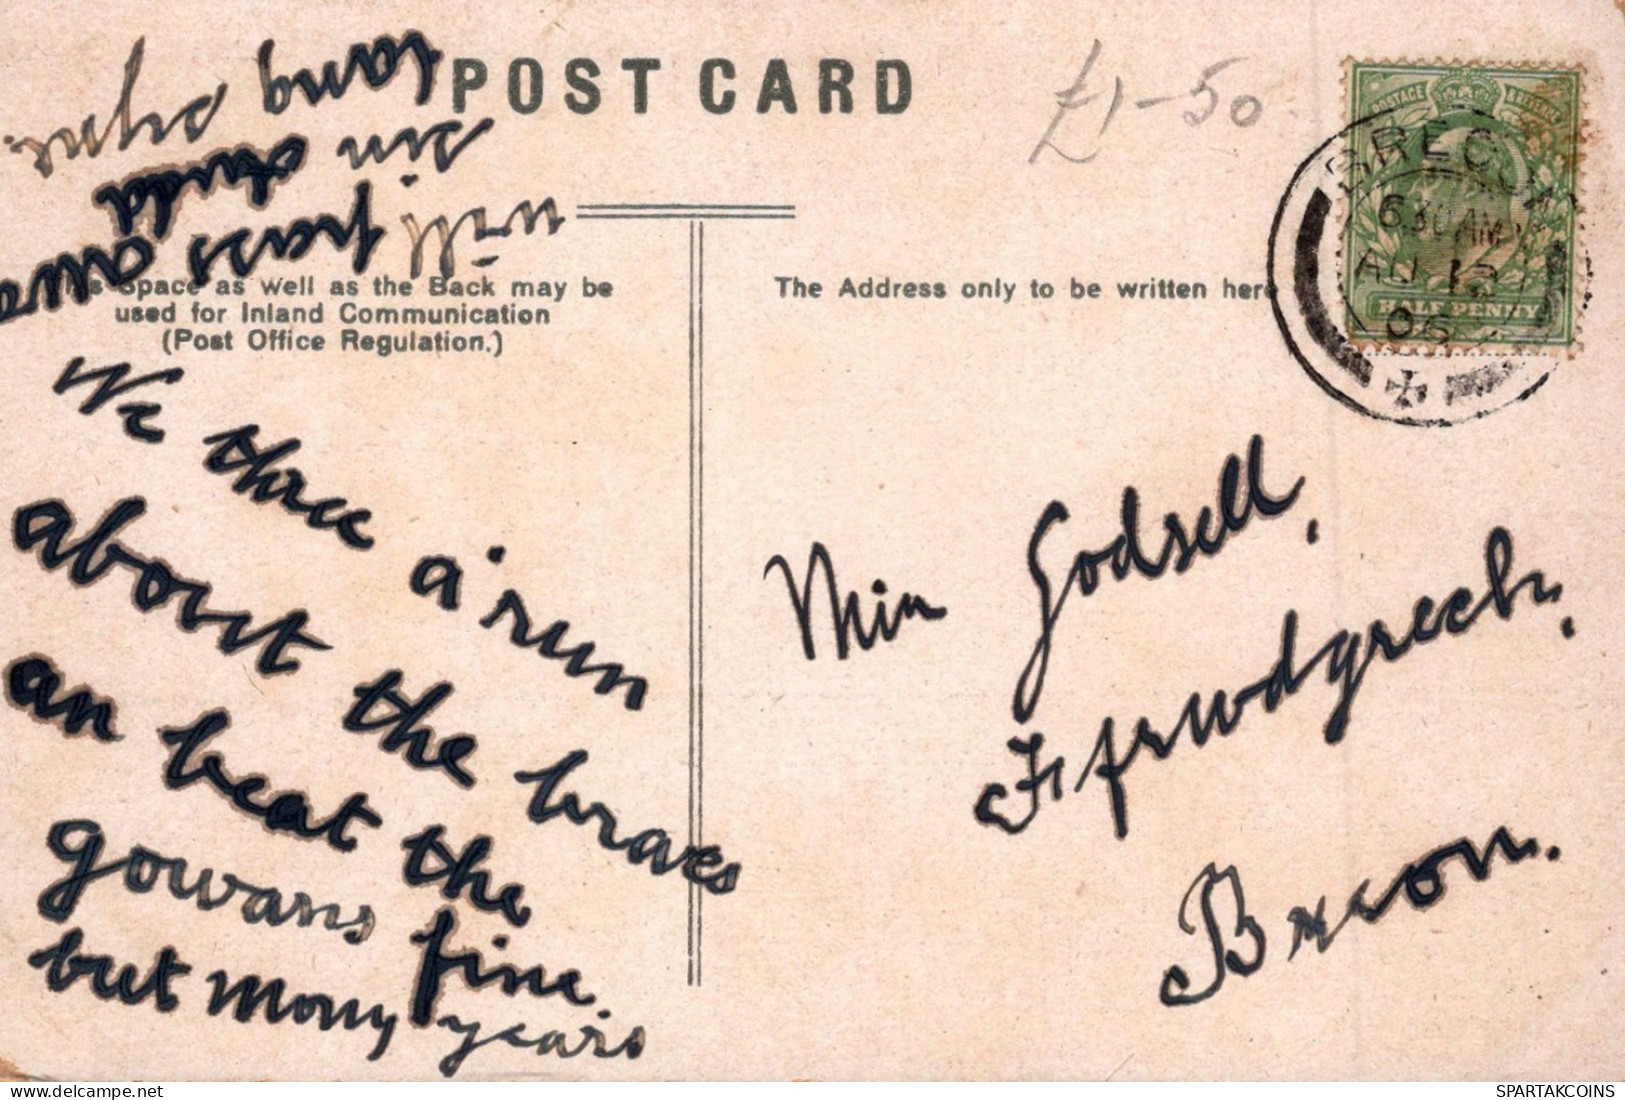 POST CARD
£1-50
POSTAGE
BRECON
6 30 AM
AU 13
06
HALFPENNY
This Space as well as the Back may be
used for Inland Communication
(Post Office Regulation.)
The Address only to be written here
We three a' run
about the braes
an beat the
gowans fine
but mony years
will pass awa
sin auld
lang syne.
Godsell,
Brecon.
SPARTAKCOINS